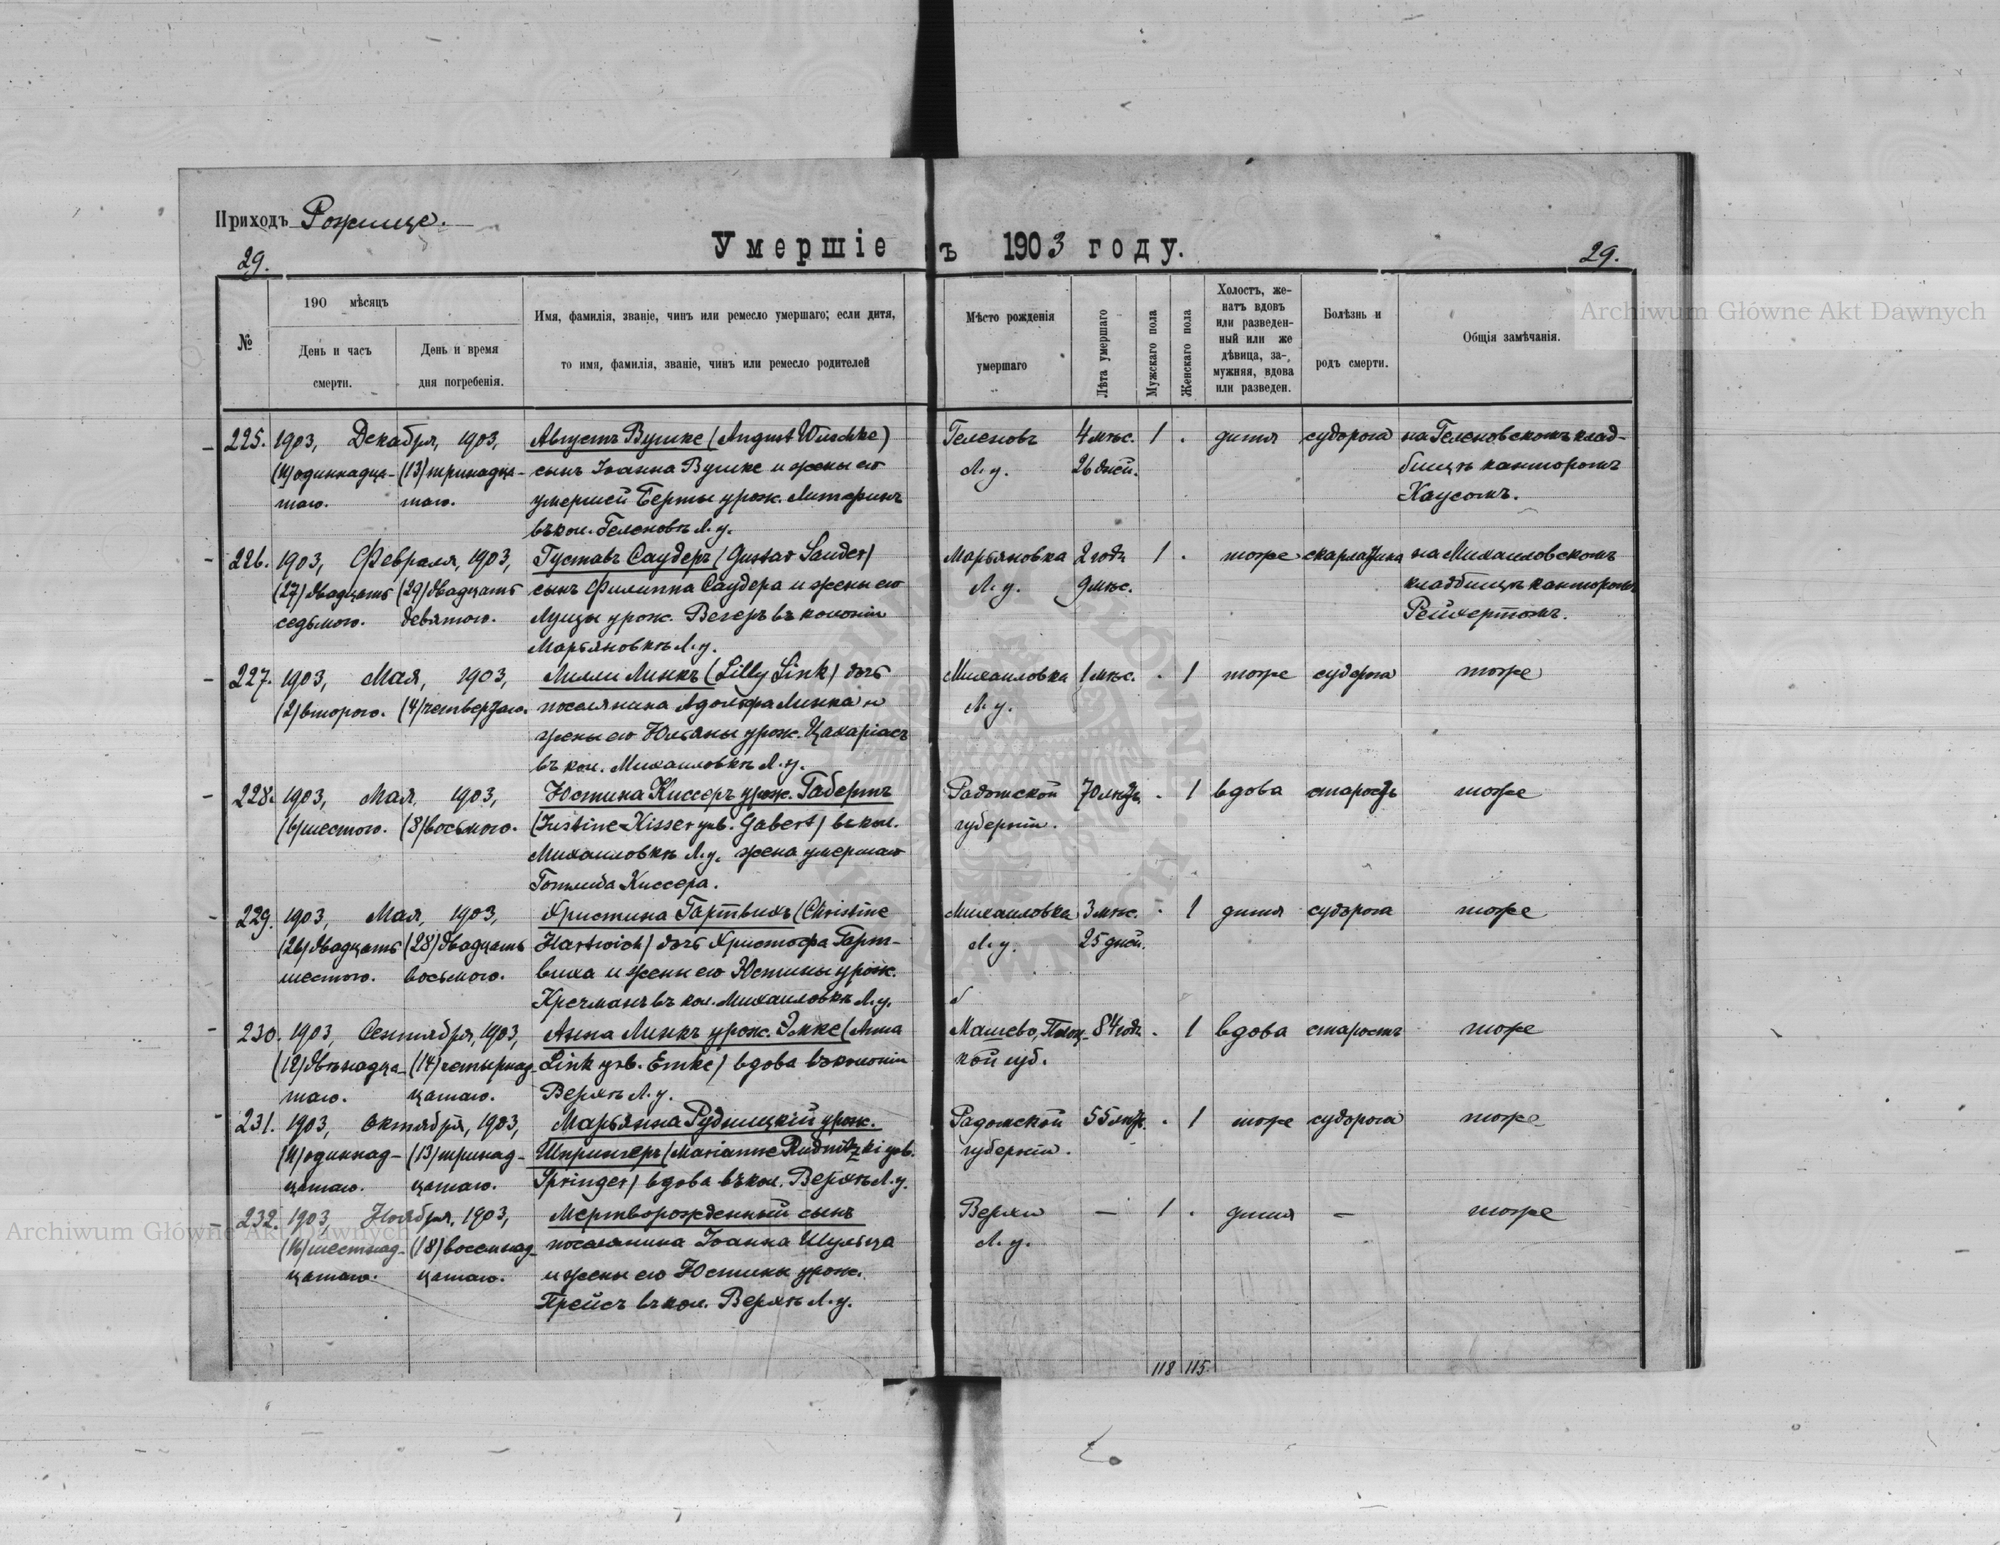 Приходъ Рожище.
Умершіе въ 1903 году.
29.
29.
№
190 мѣсяцъ
День и часъ
смерти.
День и время
дня погребенія.
Имя, фамилія, званіе, чинъ или ремесло умершаго; если дитя,
то имя, фамилія, званіе, чинъ или ремесло родителей
Мѣсто рожденія
умершаго
Лѣта умершаго
Мужскаго пола
Женскаго пола
Холостъ, же-
натъ вдовъ
или разведен-
ный или же
дѣвица, за-
мужняя, вдова
или разведен.
Болѣзнь и
родъ смерти.
Общія замѣчанія.
225. 1903, Декабря, 1903, Августъ Вушке (August Wuschke) Геленовъ 4 мѣс. 1 . дитя судорога на Геленовскомъ клад-
(11) одиннадца- (13) тринадца- сынъ Іоанна Вушке и жены его Л. у. 26 дней. бищѣ канторомъ
таго. таго. умершей Берты урож. Литфинъ Хаусомъ.
въ кол. Геленовкѣ Л. у.
226. 1903, Февраля, 1903, Густавъ Саудеръ (Gustav Sauder) Марьяновка 2 года 1 . тоже скарлатина на Михаиловскомъ
(27) двадцать (29) двадцать сынъ Филиппа Саудера и жены его Л. у. 9 мѣс. кладбищѣ канторомъ
седьмого. девятого. Луизы урож. Вегеръ въ колоніи Рейхертомъ.
Марьяновкѣ Л. у.
227. 1903, Мая, 1903, Лилли Линкъ (Lilly Link) дочь Михаиловка 1 мѣс. . 1 тоже судорога тоже
(2) второго. (4) четвертаго. поселянина Адольфа Линка и Л. у.
жены его Юльяны урож. Цахаріасъ
въ кол. Михаиловкѣ Л. у.
228. 1903, Мая, 1903, Юстина Киссеръ урож. Габертъ Радомской 70 лѣтъ. . 1 вдова старость тоже
(6) шестого. (8) восьмого. (Justine Kisser geb. Gabert) въ кол. губерніи.
Михаиловкѣ Л. у. жена умершаго
Готлиба Киссера.
229. 1903, Мая, 1903, Христина Гартвихъ (Christine Михаиловка 3 мѣс. . 1 дитя судорога тоже
(26) двадцать (28) двадцать Hartwich) дочь Христофа Гарт- Л. у. 25 дней.
шестого. восьмого. виха и жены его Юстины урож.
Кречманъ въ кол. Михаиловкѣ Л. у.
230. 1903, Сентября, 1903, Анна Линкъ урож. Эмке (Anna Машево, Плоц- 84 года . 1 вдова старость тоже
(12) двѣнадца- (14) четырнад- Link geb. Emke) вдова въ колоніи кой губ.
таго. цатаго. Верхѣ Л. у.
231. 1903, Октября, 1903, Марьянна Рудницкій урож. Радомской 55 лѣтъ. . 1 тоже судорога тоже
(11) одиннад- (13) тринад- Шпрингеръ (Marianne Rudnitzki geb. губерніи.
цатаго. цатаго. Springer) вдова въ кол. Верхѣ Л. у.
232. 1903, Ноября, 1903, Мертворожденный сынъ Верхи — 1 . дитя — тоже
(16) шестнад- (18) восемнад- поселянина Іоанна Шульца Л. у.
цатаго. цатаго. и жены его Юстины урож.
Прейсъ въ кол. Верхѣ Л. у.
118 115.
Archiwum Główne Akt Dawnych
Archiwum Główne Akt Dawnych